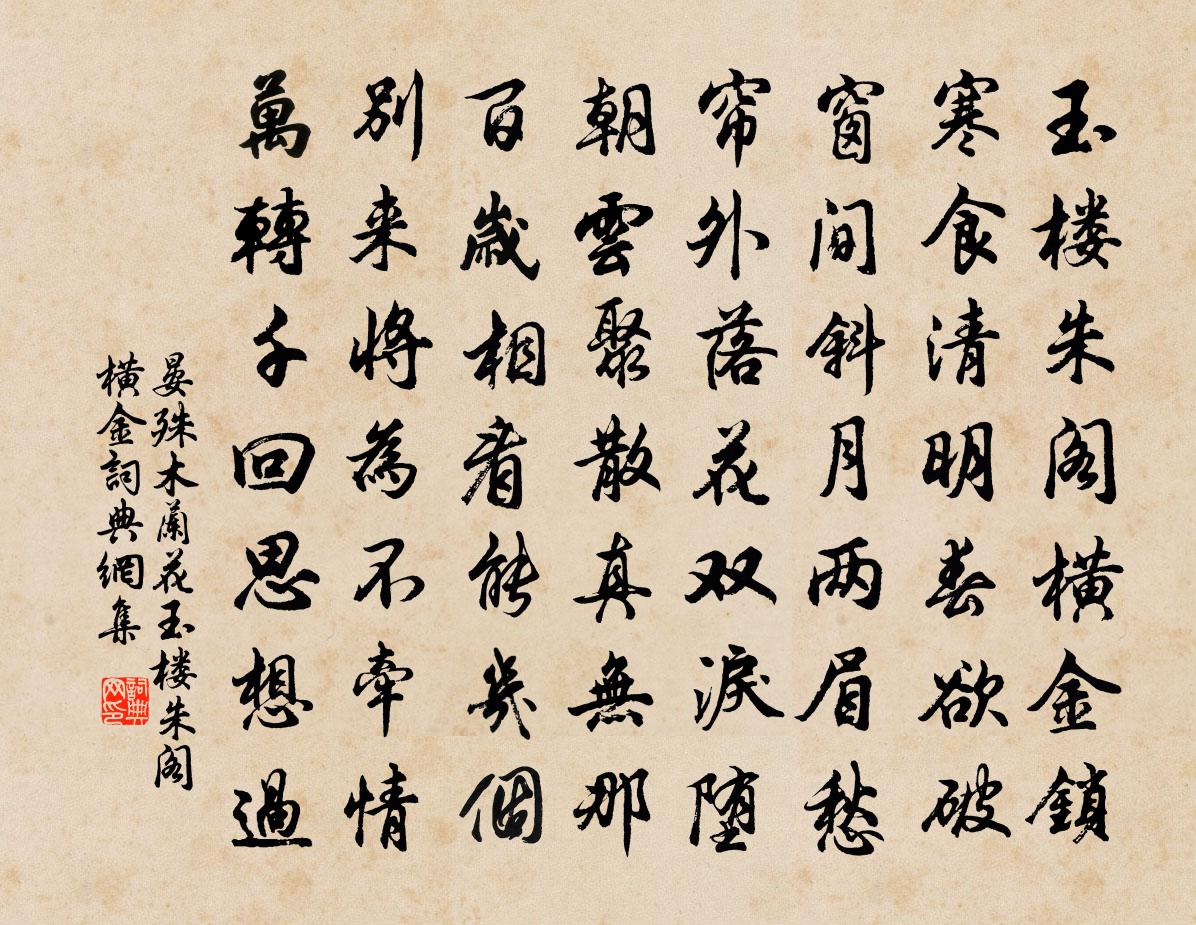 玉楼朱阁橫金鎖
寒食清明春欲破
窗间斜月两眉愁
帘外落花双淚堕
朝雲聚散真無那
百歲相看能幾個
别来將為不牽情
萬轉千回思想過
晏殊木蘭花玉楼朱阁
橫金詞典網集
詞典网印